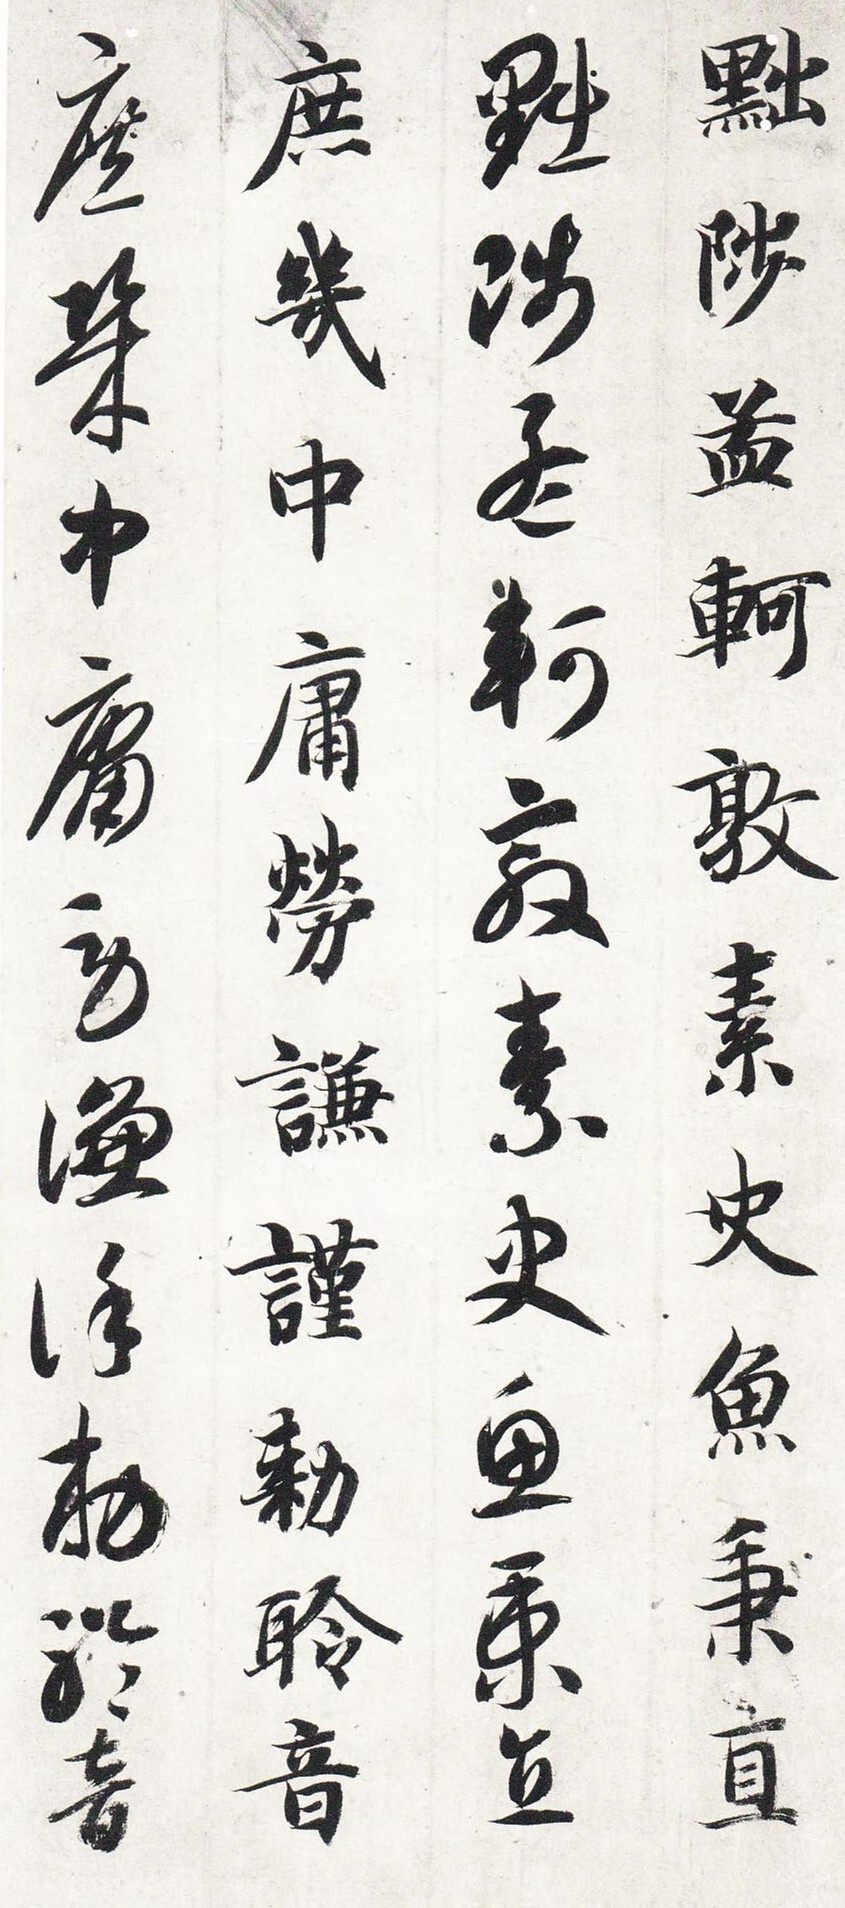 黜陟孟軻敦素史魚秉直
黜陟孟軻敦素史魚秉直
庶幾中庸勞謙謹勑聆音
庶幾中庸勞謙謹勑聆音